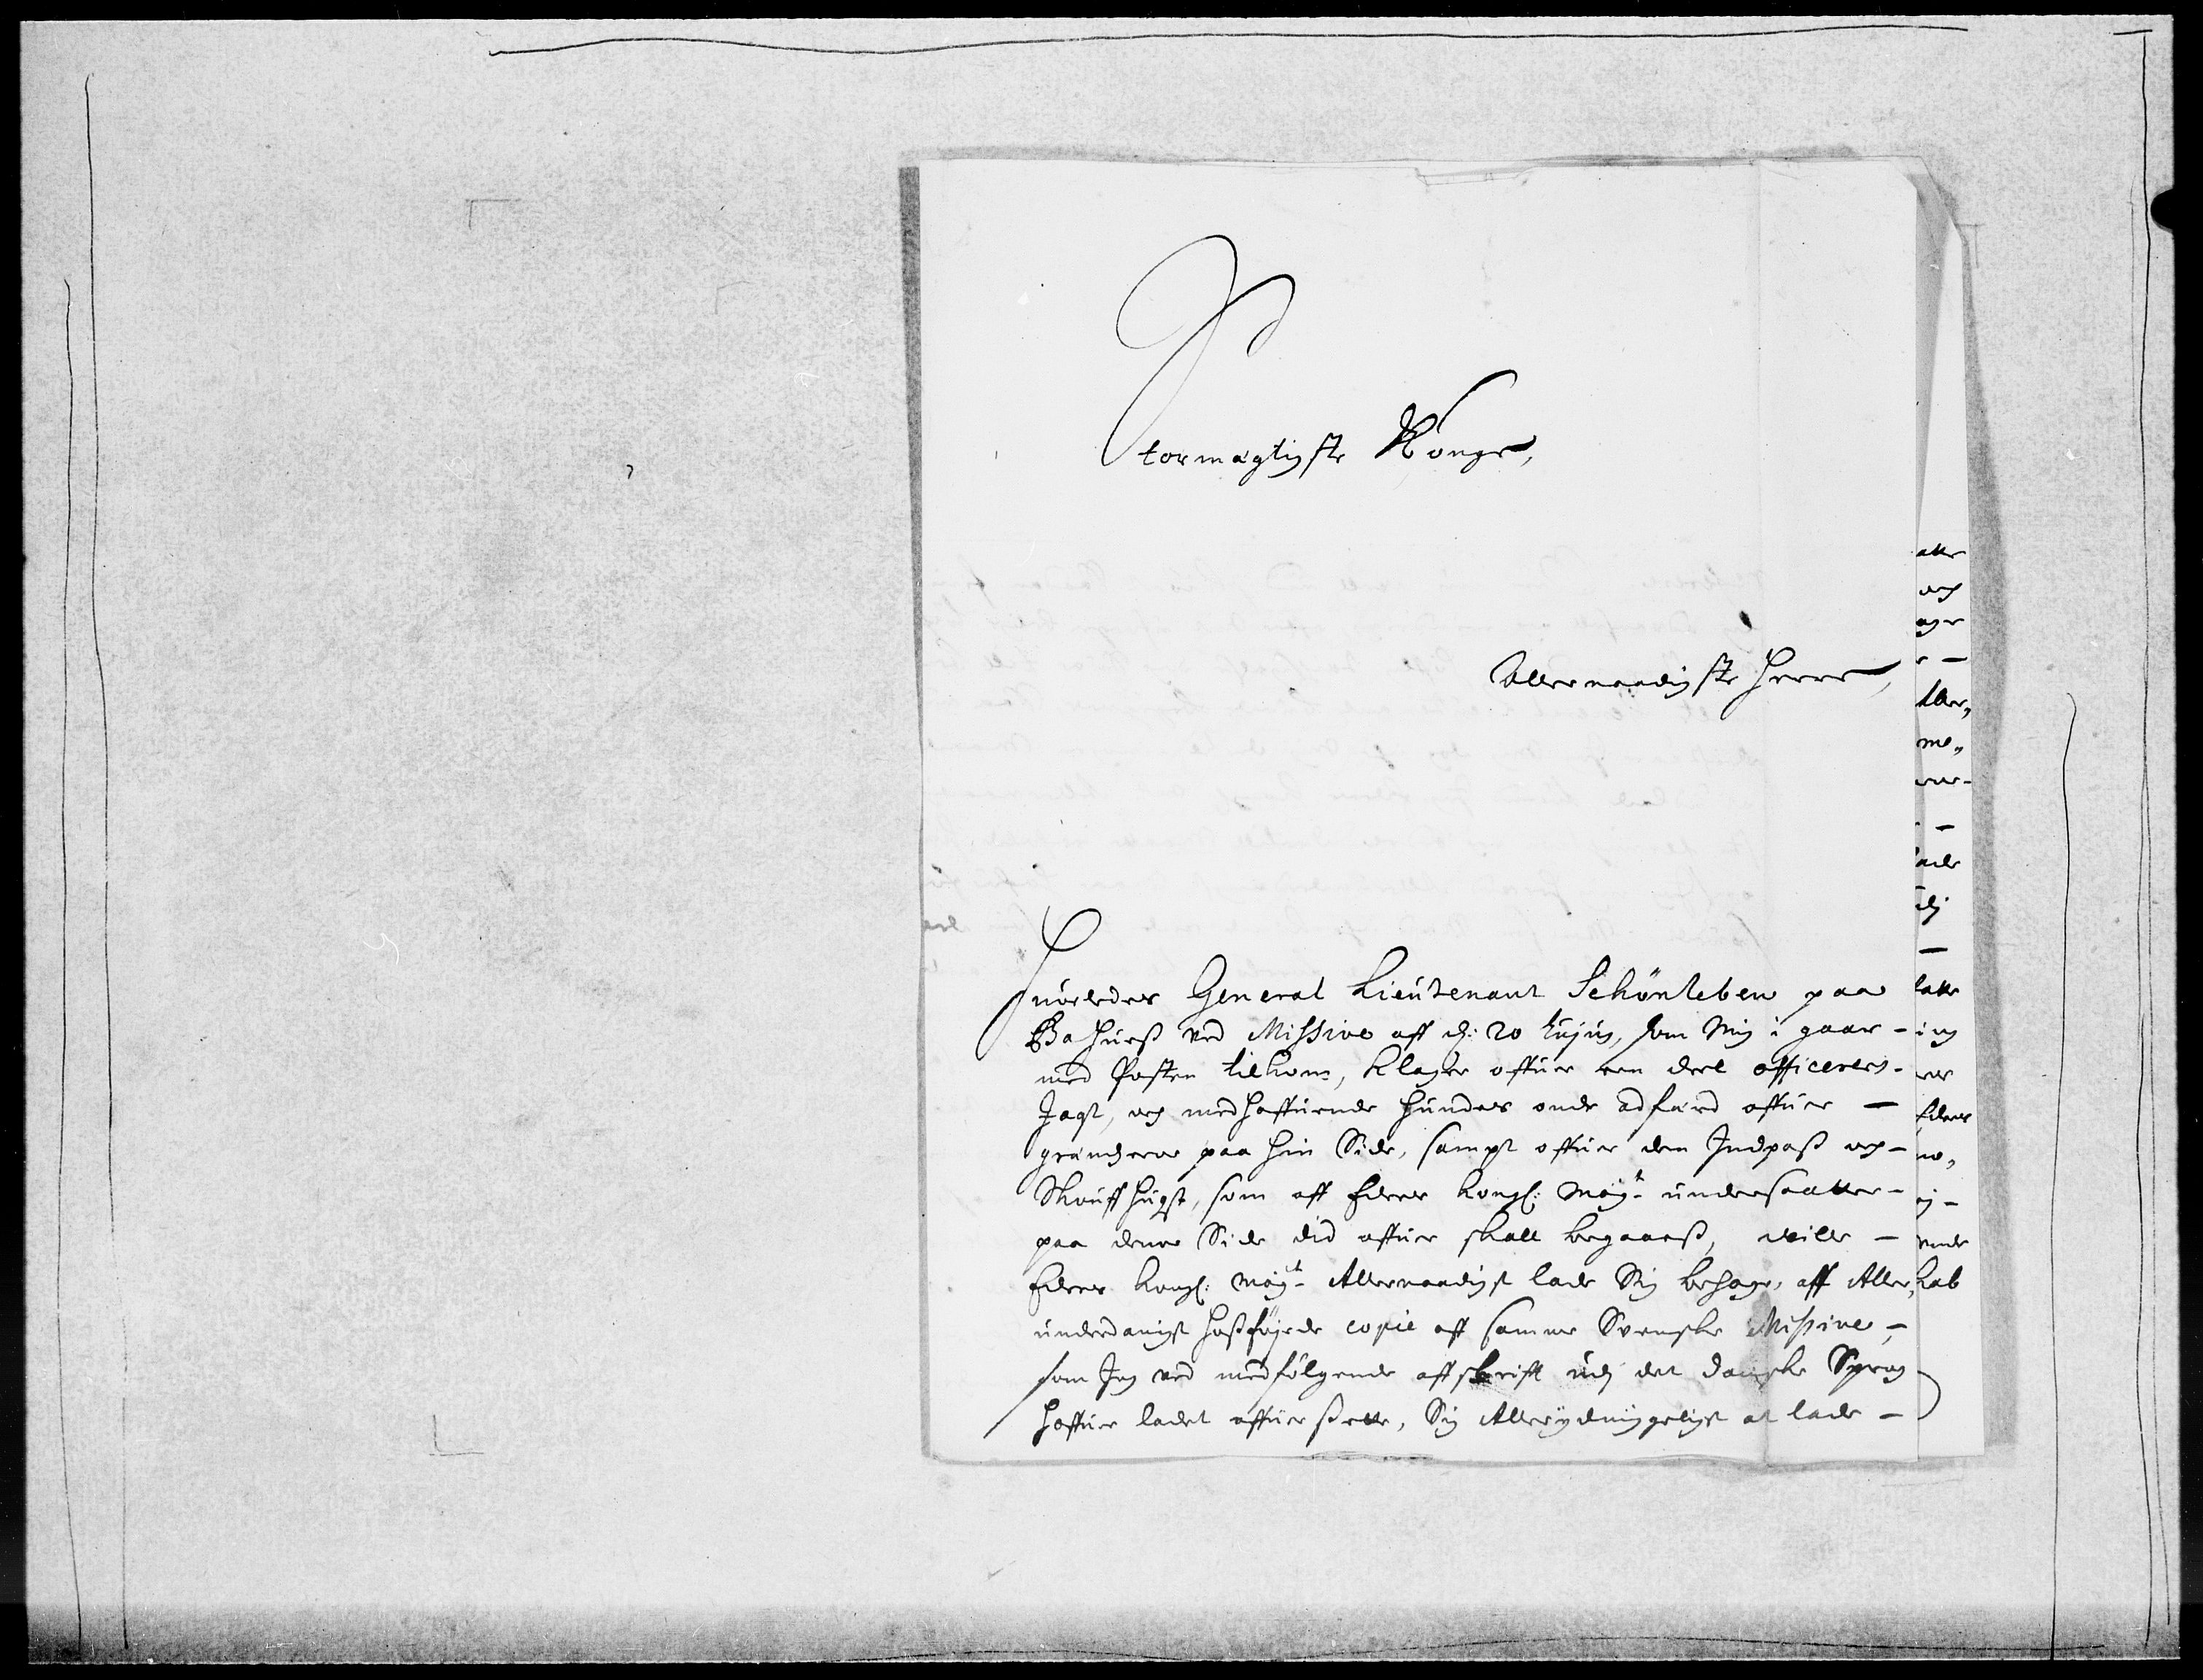 Stormægtigste Konge,
Allernaadigste Herre,
Huorledes General Lieutenant Schönleben paa
Bahuus ved Missive aff d: 20 hujus, som Mig i gaar -
med Posten tilkom, klager offuer een deel officerers -
Jagt, och medhaffuende hunders onde adfærd offuer -
grændserne paa hin Side, sampt offuer den Indpass och -
Skouffhugst, som aff Eders kongl: Mayt- undersaatter -
paa denne Side did offuer skall begaaes, ville -
Eders kongl: Mayt- Allernaadigst lade Sig behage, aff Aller,
underdanigst hossføyede copie aff samme Svenske Missive, -
som Jeg ved medfølgende affskrifft udj det danske Sprog
haffuer ladet offuersette, Sig Allerydmygeligst at lade -
atte
och
age
e -
Aller,
me,
-
lade
dj
-
latte
ing
er
Eders
no,
ej -
ende
kab